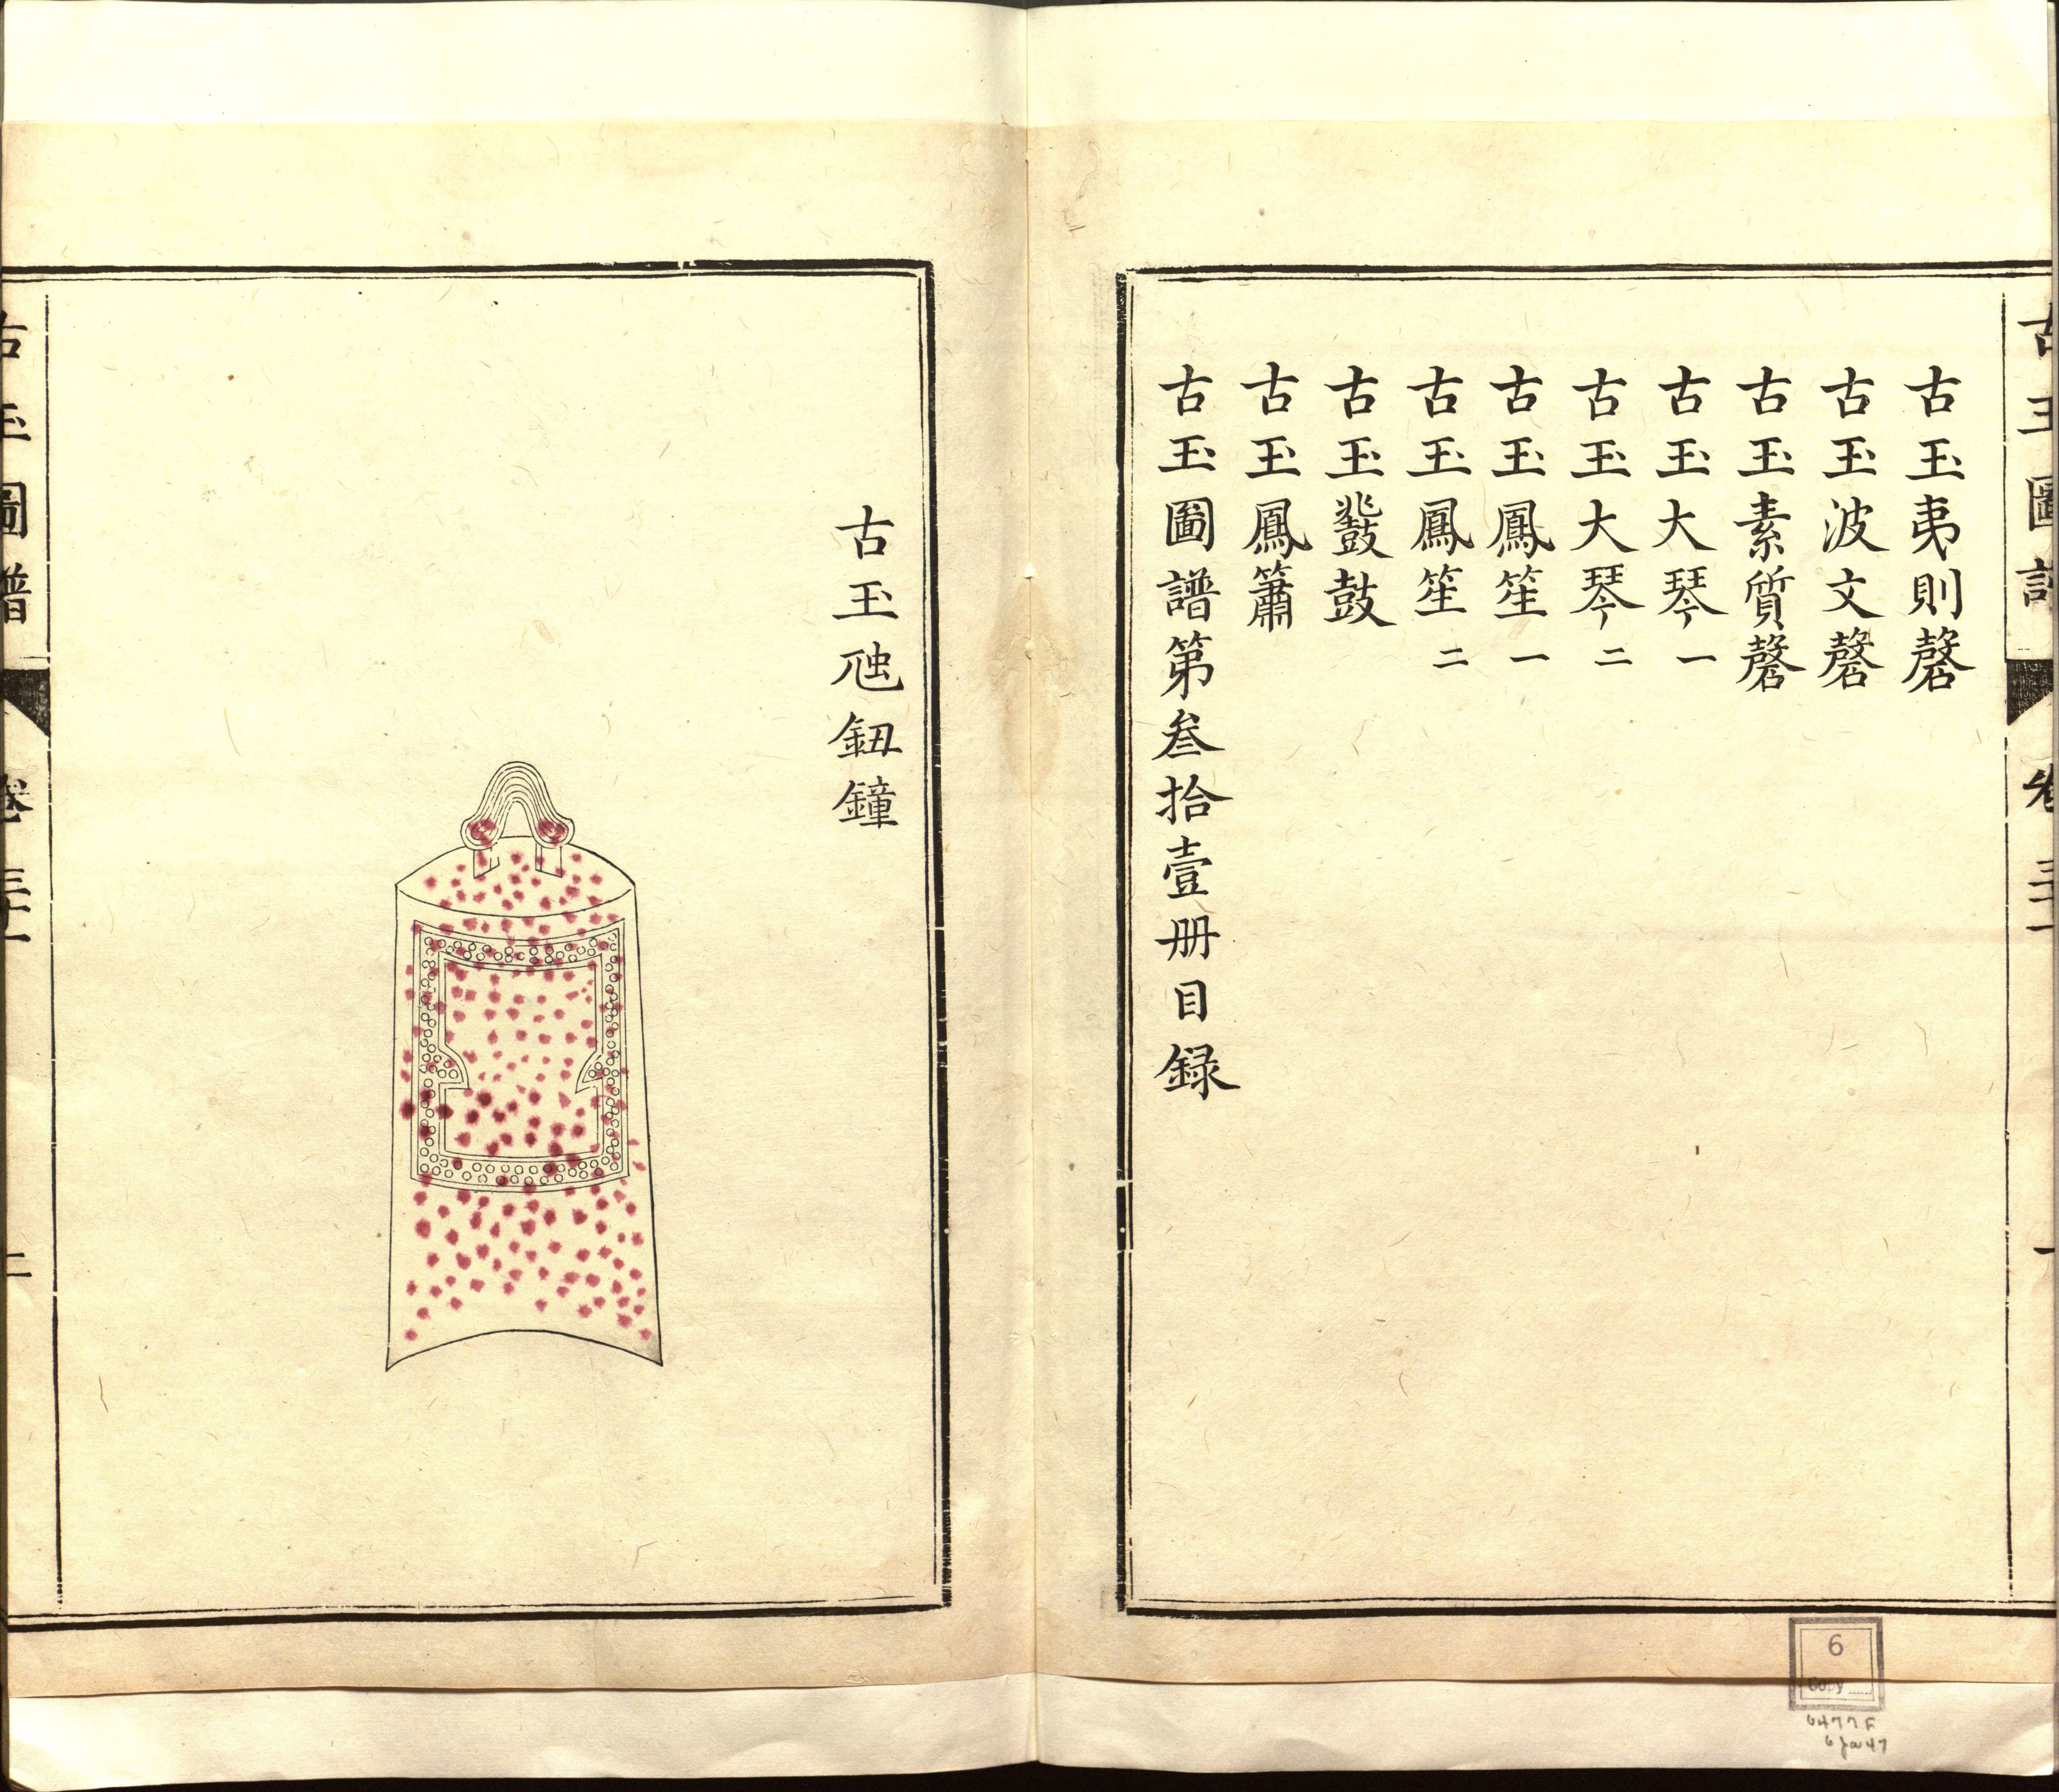 古玉圖譜
卷三十一
一
古玉夷則磬
古玉波文磬
古玉素質磬
古玉大琴一
古玉大琴二
古玉鳳笙一
古玉鳳笙二
古玉鼗鼓
古玉鳳簫
古玉圖譜第叁拾壹册目録
古玉虺鈕鐘
古玉圖譜
卷三十一
二
6
Copy